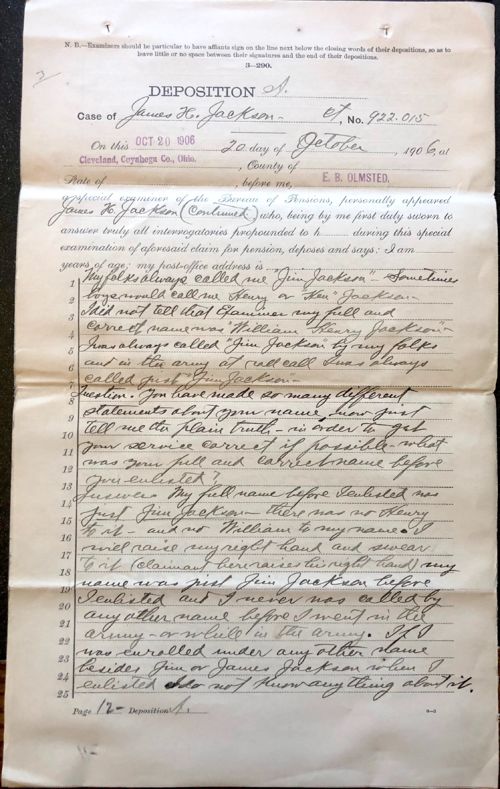 N. B.—Examiners should be particular to have affiants sign on the line next below the closing words of their depositions, so as to
leave little or no space between their signatures and the end of their depositions.
3—290.
DEPOSITION A.
Case of James H. Jackson — , No. 922.015
On this OCT 20 1906 20 day of October, 1906, at
Cleveland, Cuyahoga Co., Ohio. , County of
State of , before me, E. B. OLMSTED.
a special examiner of the Bureau of Pensions, personally appeared
James H. Jackson (Continued) who, being by me first duly sworn to
answer truly all interrogatories propounded to h during this special
examination of aforesaid claim for pension, deposes and says: I am
years of age; my post-office address is
1 My folks always called me "Jim Jackson" – Sometimes
2 boys would call me Henry or "Hen" Jackson –
3 I did not tell that Examiner my full and
4 correct name was "William Henry Jackson" –
5 I was always called "Jim Jackson" by my folks
6 and in the army at roll call I was always
7 called just "Jim Jackson –
8 Question. You have made so many different
9 statements about your name, now just
10 tell me the plain truth – in order to get
11 your service correct if possible – what
12 was your full and correct name before
13 you enlisted?
14 Answer. My full name before I enlisted was
15 just Jim Jackson – there was no Henry
16 to it – and no William to my name. I
17 will raise my right hand and swear
18 to it (claimant here raises his right hand) my
19 name was just Jim Jackson before
20 I enlisted and I never was called by
21 any other name before I went in the
22 army – or while in the army. If I
23 was enrolled under any other name
24 besides Jim or James Jackson when I
25 enlisted I do not know anything about it.
Page 12 – Deposition A.